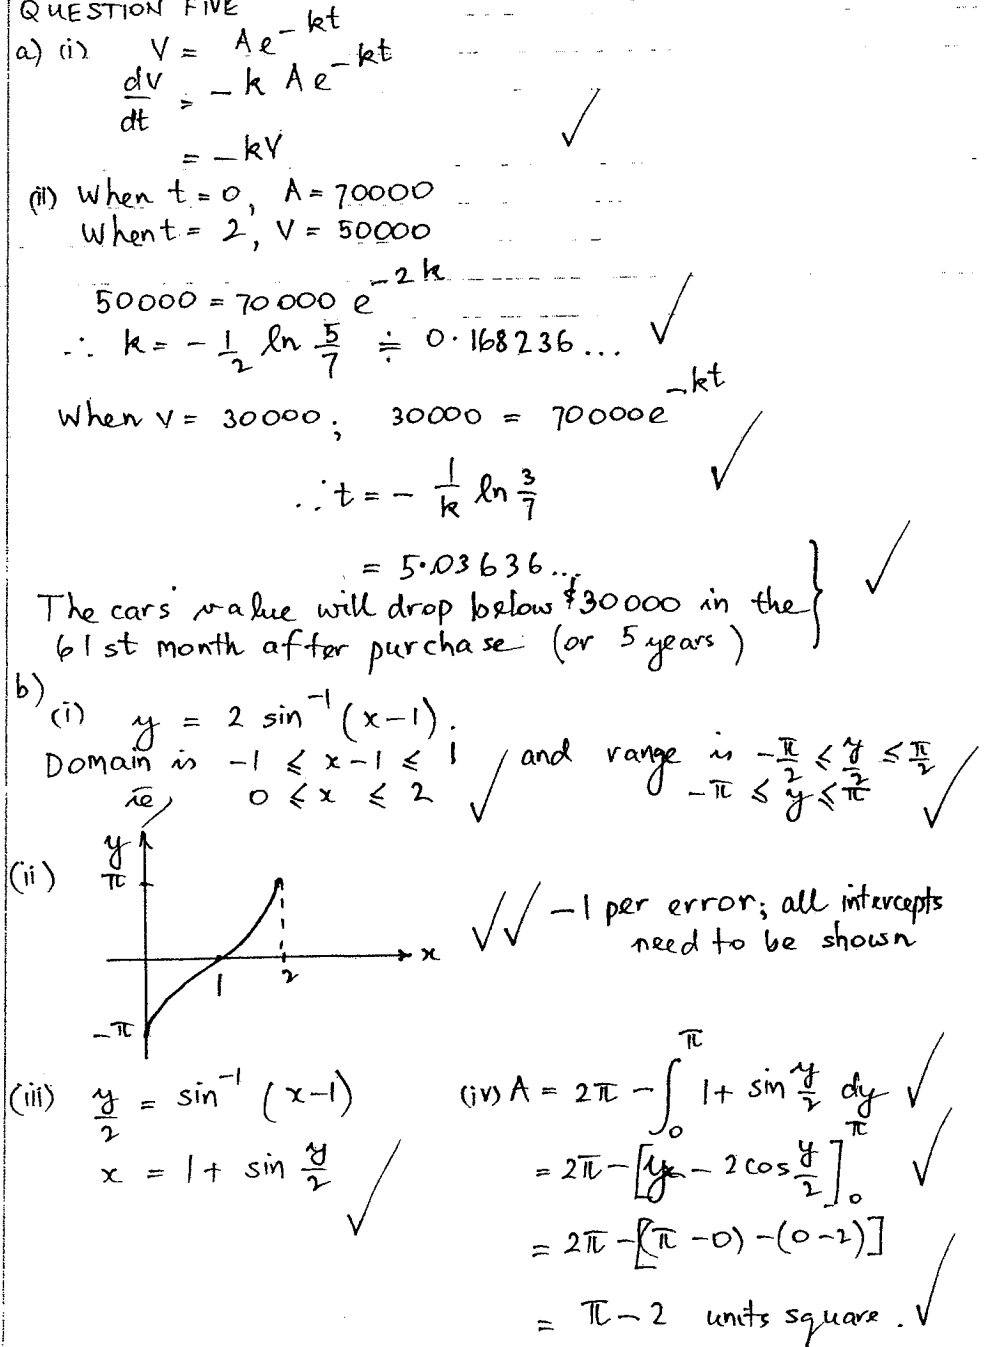 QUESTION FIVE
a) (i) V = Ae^{-kt}
dv/dt = -k Ae^{-kt}
= -kV
(ii) When t = 0, A = 70000
When t = 2, V = 50000
50000 = 70000 e^{-2k}
∴ k = - 1/2 ln 5/7 ≑ 0.168236...
When V = 30000; 30000 = 70000e^{-kt}
∴ t = - 1/k ln 3/7
= 5.03636...
The cars' value will drop below $30000 in the
61st month after purchase (or 5 years)
b)
(i) y = 2 sin^{-1} (x-1).
Domain is -1 ≤ x-1 ≤ 1 and range is -π/2 ≤ y/2 ≤ π/2
ie, 0 ≤ x ≤ 2 -π ≤ y ≤ π
(ii) y
π
-1 per error; all intercepts
need to be shown
x
1 2
-π
(iii) y/2 = sin^{-1} (x-1)
x = 1 + sin y/2
(iv) A = 2π - ∫_0^π 1 + sin y/2 dy
= 2π - [y - 2cos y/2]_0^π
= 2π - [(π - 0) - (0 - 2)]
= π - 2 units square.